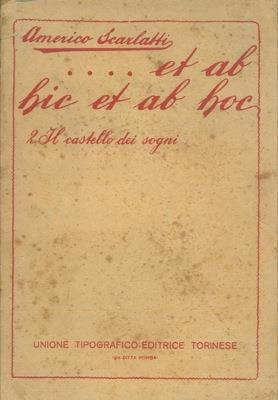 Americo Scarlatti
.... et ab
hic et ab hoc
2. Il castello dei sogni
UNIONE TIPOGRAFICO-EDITRICE TORINESE
già DITTA POMBA